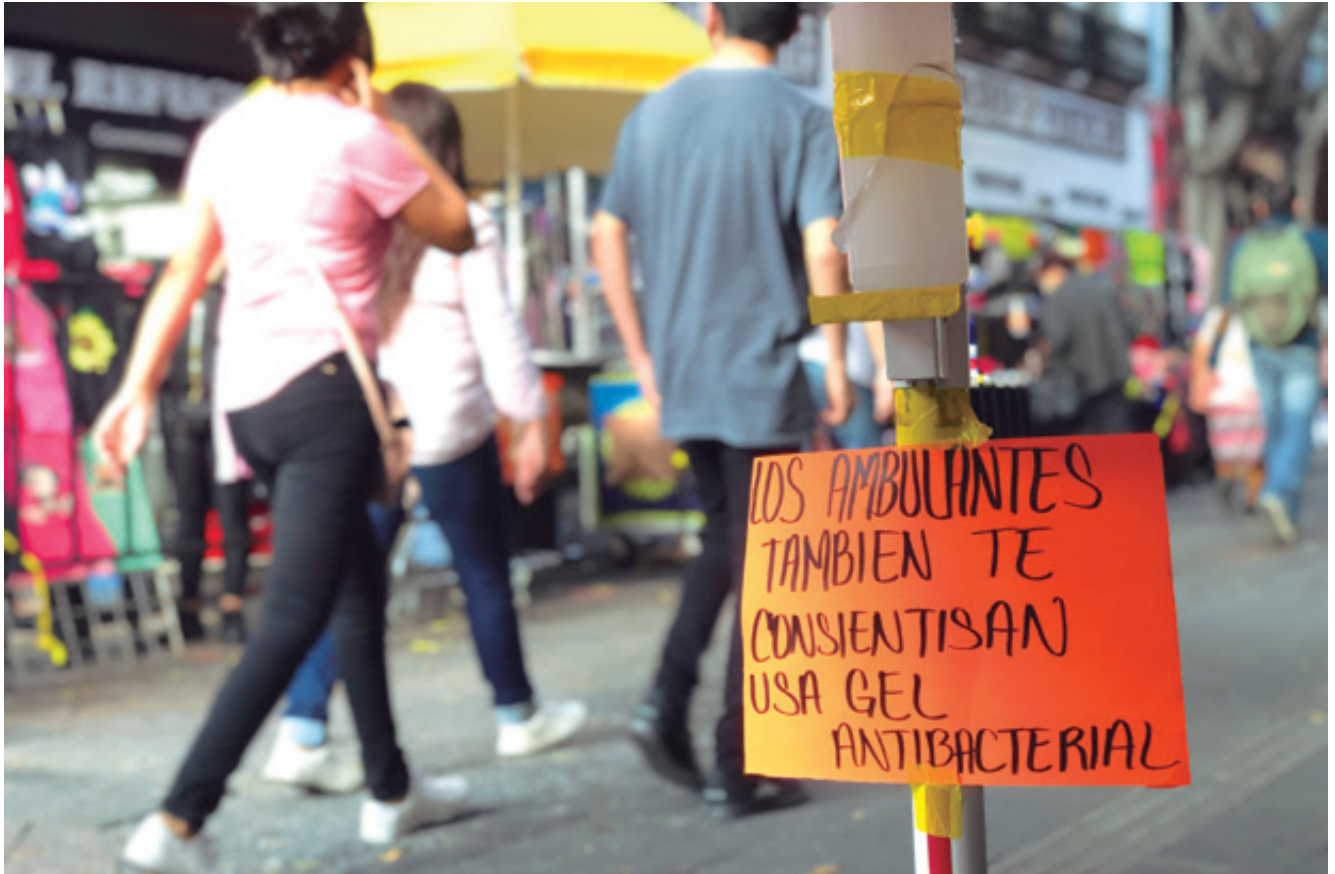 EL REFUG
LOS AMBULANTES
TAMBIEN TE
CONSIENTISAN
USA GEL
ANTIBACTERIAL